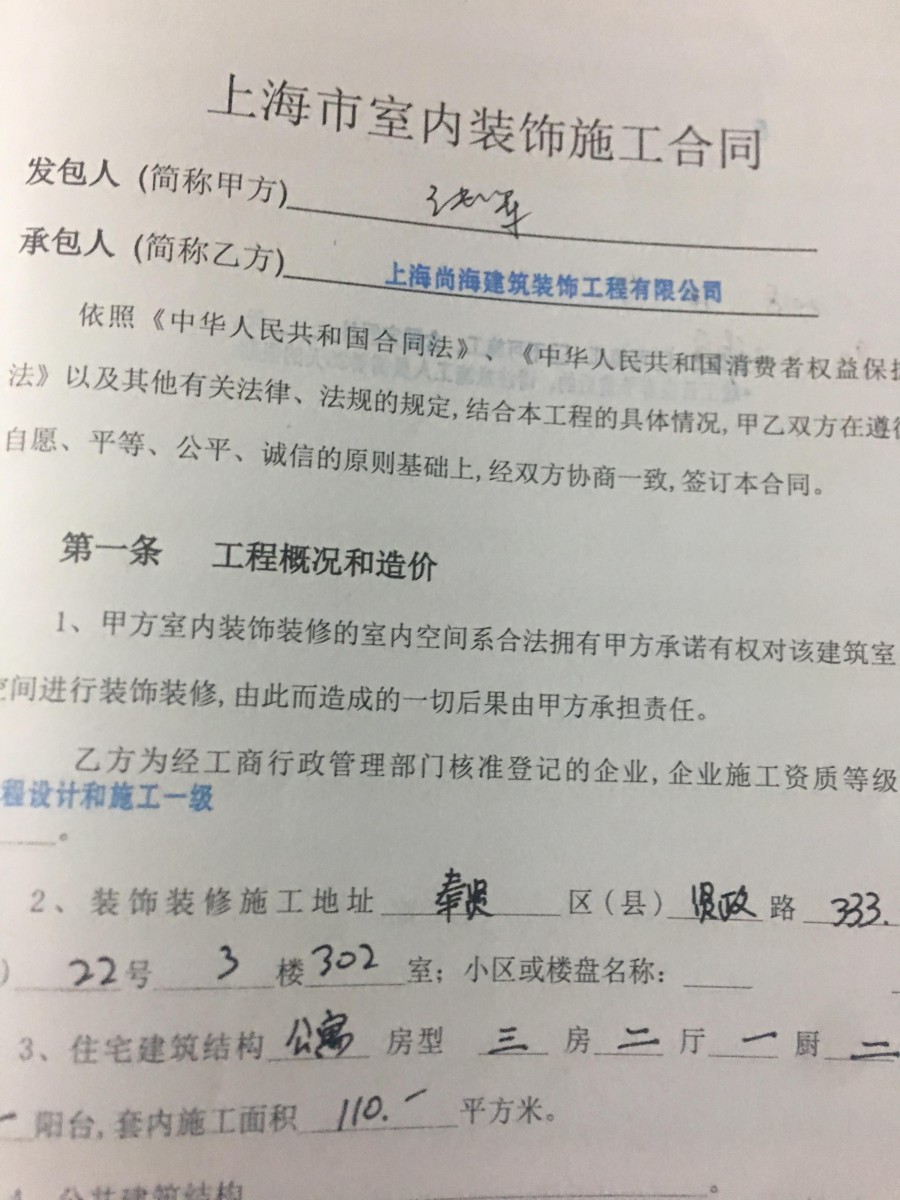 上海市室内装饰施工合同
发包人 (简称甲方)
承包人 (简称乙方) 上海尚海建筑装饰工程有限公司
依照《中华人民共和国合同法》、《中华人民共和国消费者权益保护
法》以及其他有关法律、法规的规定,结合本工程的具体情况,甲乙双方在遵循
自愿、平等、公平、诚信的原则基础上,经双方协商一致,签订本合同。
第一条 工程概况和造价
1、甲方室内装饰装修的室内空间系合法拥有甲方承诺有权对该建筑室
空间进行装饰装修,由此而造成的一切后果由甲方承担责任。
乙方为经工商行政管理部门核准登记的企业,企业施工资质等级
程设计和施工一级
。
2、装饰装修施工地址 奉贤 区(县) 贤政 路 333.
) 22号 3 楼 302 室；小区或楼盘名称：
3、住宅建筑结构 公寓 房型 三 房 二 厅 一 厨 二
一 阳台,套内施工面积 110.- 平方米。
4、公共建筑结构 。